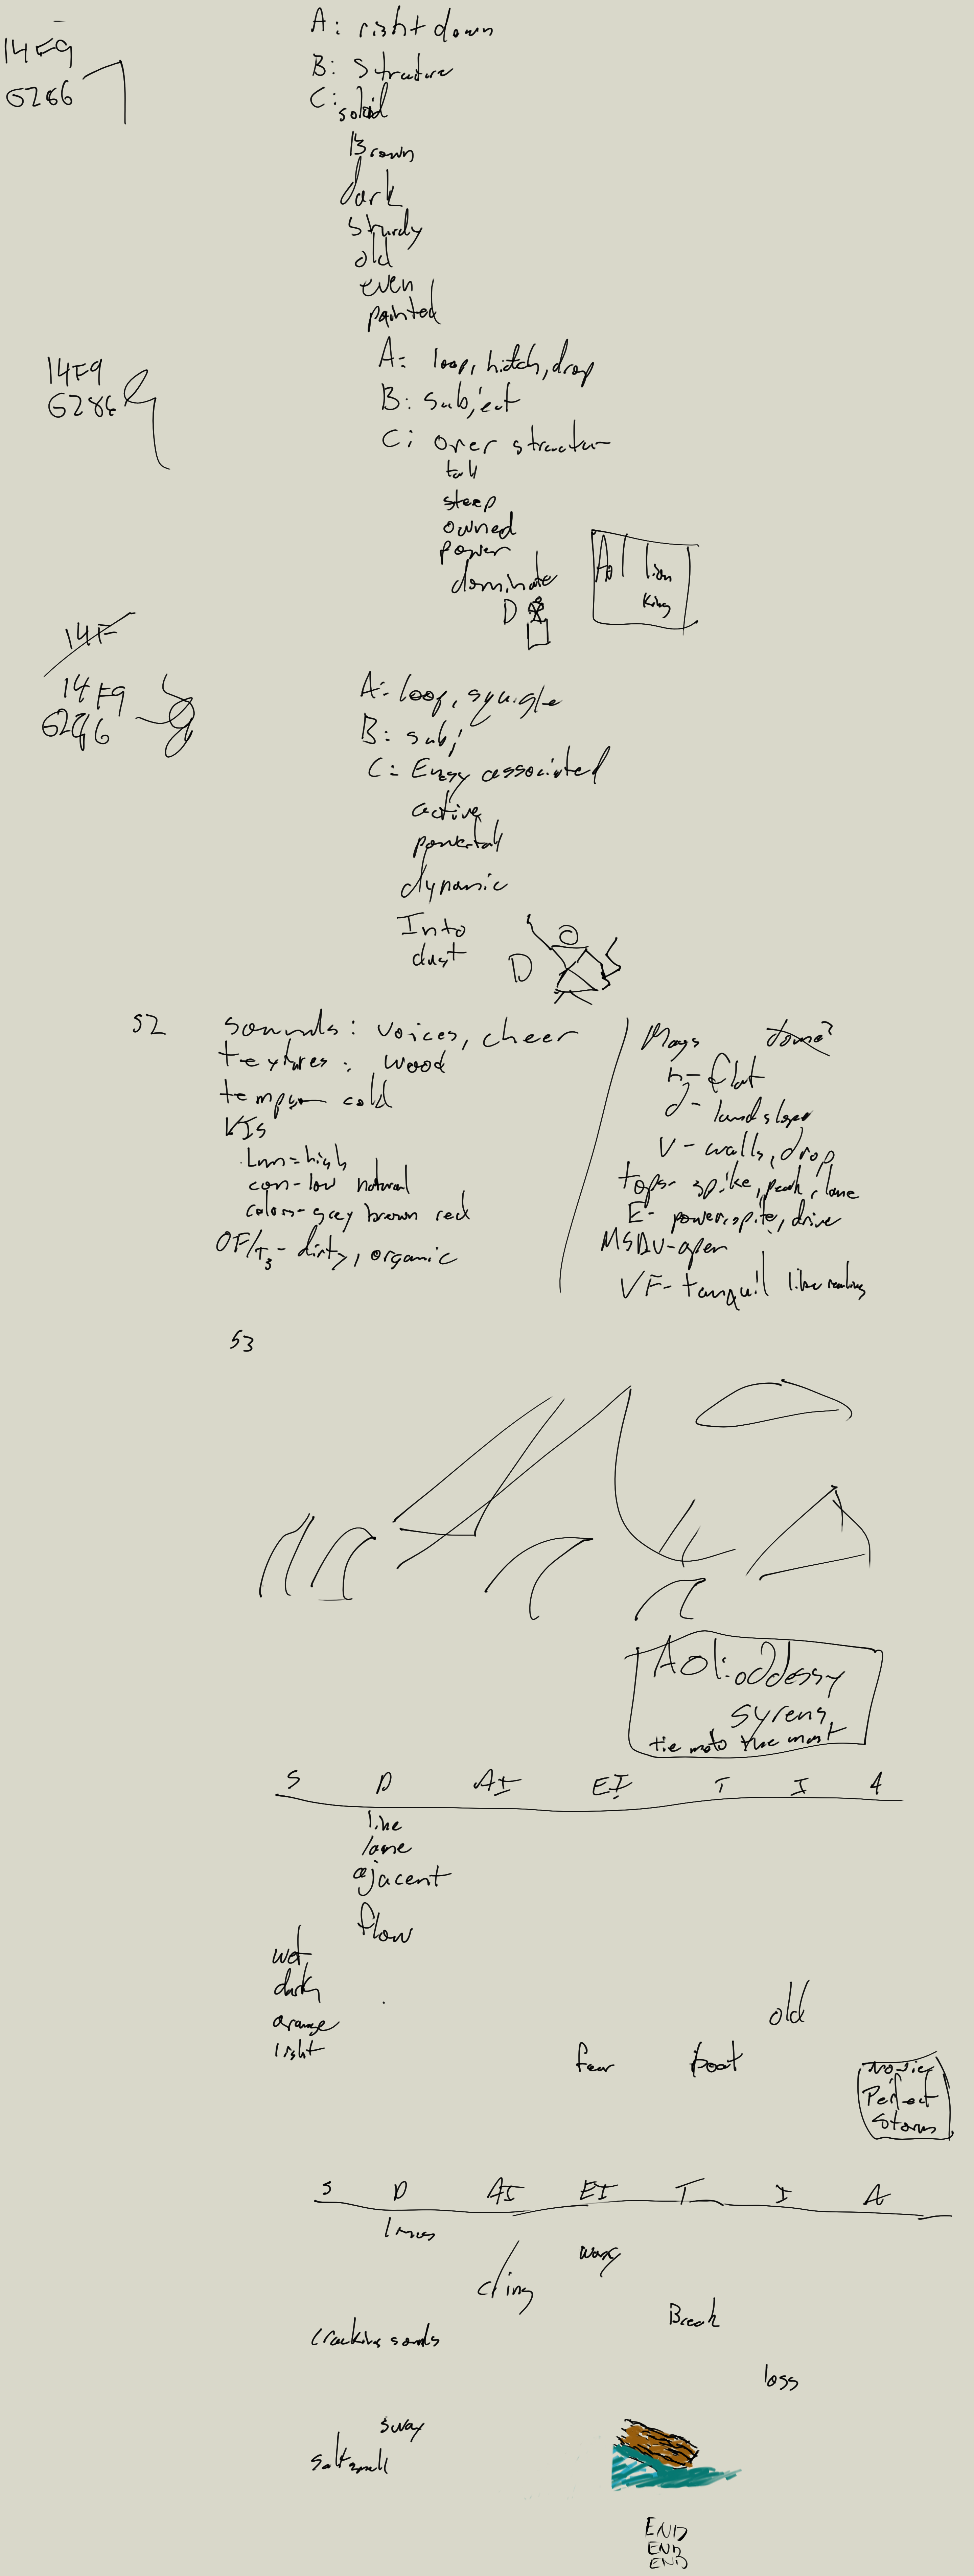 14F9
G286
A: right down
B: Structure
C: solid
Brown
dark
sturdy
old
even
painted
14F9
G286
A: loop, hitch, drop
B: subject
C: over structure
tall
steep
owned
power
dominate
D
Aol lion
King
14F
14F9
G286
A: loop, squigle
B: subj
C: Enrgy associated
active
powerfull
dynamic
Into
dust
D
S2
sounds: voices, cheer
textures: wood
temps- cold
VIs
Lum=high
con-low natural
colors-grey brown red
- dirty, organic
Mags dome?
h- flat
d- land slope
V- walls, drop
tops- spike, peak, lane
E- power, spite, drive
-open
VF- tanquil like reading
S3
AOl: oddessy
syrens
tie me to the mast
S D AI EI T I A
line
lane
ajacent
flow
wet
dark
orange
light
old
fear boat
Movie
Perfect
Storm
S D AI EI T I A
lines
cling
Break
cracking sounds
loss
sway
salt smell
END
END
END